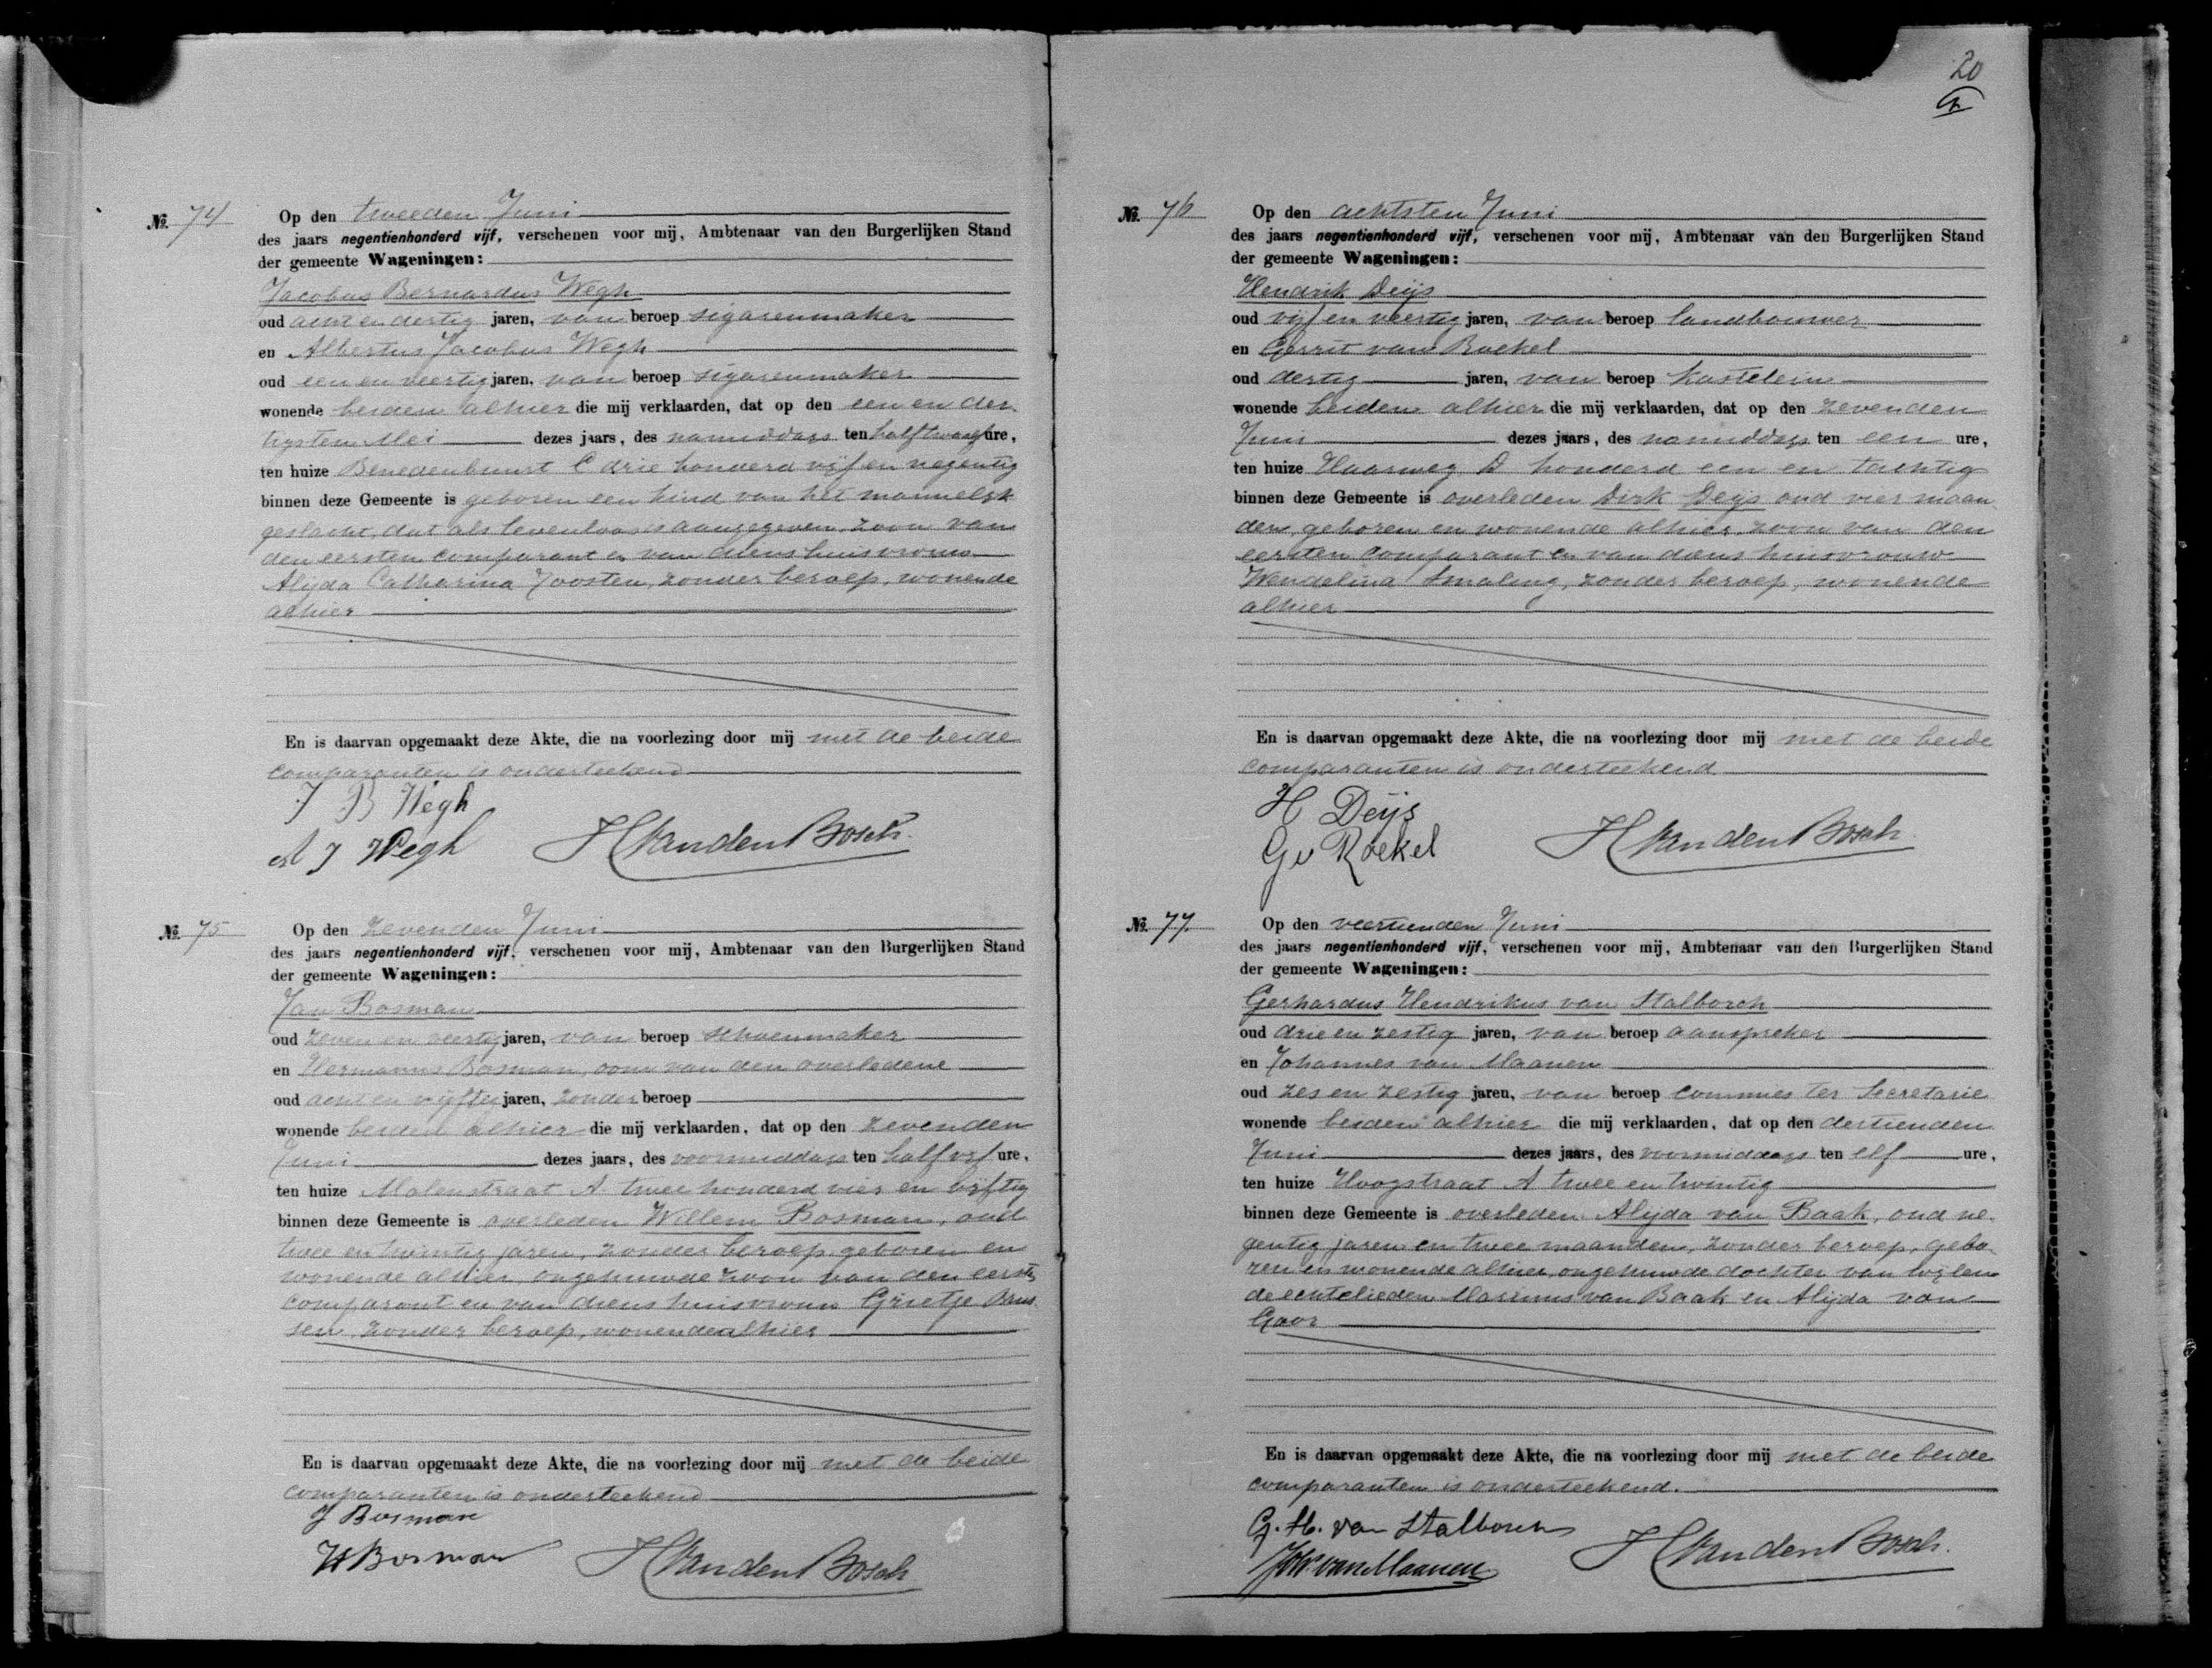 No. 74
Op den tweeden Juni
des jaars negentienhonderd vijf, verschenen voor mij, Ambtenaar van den Burgerlijken Stand
der gemeente Wageningen:
Jacobus Bernardus Wegh
oud acht en dertig jaren, van beroep sigarenmaker
en Albertus Jacobus Wegh
oud een en veertig jaren, van beroep sigarenmaker
wonende beiden alhier die mij verklaarden, dat op den een en der
tigsten Mei dezes jaars, des namiddags ten half twaalf ure,
ten huize Benedenbuurt C drie honderd vijf en negentig
binnen deze Gemeente is geboren een kind van het mannelijk
geslacht, dat als levenloos is aangegeven, zoon van
den eersten comparant en van diens huisvrouw
Alijda Catharina Joosten, zonder beroep, wonende
alhier
En is daarvan opgemaakt deze Akte, die na voorlezing door mij met de beide
comparanten is onderteekend
J B Wegh
A J Wegh HvandenBosch.
No. 75
Op den zevenden Juni
des jaars negentienhonderd vijf, verschenen voor mij, Ambtenaar van den Burgerlijken Stand
der gemeente Wageningen:
Jan Bosman
oud zeven en veertig jaren, van beroep schoenmaker
en Hermanus Bosman, oom van den overledene
oud acht en vijftig jaren, zonder beroep
wonende beiden alhier die mij verklaarden, dat op den zevenden
Juni dezes jaars, des voormiddags ten half vijf ure,
ten huize Molenstraat A twee honderd vier en vijftig
binnen deze Gemeente is overleden Willem Bosman, oud
twee en twintig jaren, zonder beroep, geboren en
wonende alhier, ongehuwde zoon van den eersten
comparant en van diens huisvrouw Grietje Jans
sen, zonder beroep, wonende alhier
En is daarvan opgemaakt deze Akte, die na voorlezing door mij met de beide
comparanten is onderteekend
J Bosman
H Bosman HvandenBosch
20
No. 76
Op den achtsten Juni
des jaars negentienhonderd vijf, verschenen voor mij, Ambtenaar van den Burgerlijken Stand
der gemeente Wageningen:
Hendrik Deijs
oud vijf en veertig jaren, van beroep landbouwer
en Gerrit van Roekel
oud dertig jaren, van beroep kastelein
wonende beiden alhier die mij verklaarden, dat op den zevenden
Juni dezes jaars, des namiddags ten een ure,
ten huize Haarweg D honderd een en tachtig
binnen deze Gemeente is overleden Dirk Deijs oud vier maan
den, geboren en wonende alhier, zoon van den
eersten comparant en van diens huisvrouw
Wendelina Smaling, zonder beroep, wonende
alhier
En is daarvan opgemaakt deze Akte, die na voorlezing door mij met de beide
comparanten is onderteekend
H Deijs
G v Roekel HvandenBosch.
No. 77.
Op den veertienden Juni
des jaars negentienhonderd vijf, verschenen voor mij, Ambtenaar van den Burgerlijken Stand
der gemeente Wageningen:
Gerhardus Hendrikus van Stalborch
oud drie en zestig jaren, van beroep aanspreker
en Johannes van Maanen
oud zes en zestig jaren, van beroep commies ter Secretarie
wonende beiden alhier die mij verklaarden, dat op den dertienden
Juni dezes jaars, des voormiddags ten elf ure,
ten huize Hoogstraat A twee en twintig
binnen deze Gemeente is overleden Alijda van Baak, oud ne
gentig jaren en twee maanden, zonder beroep, gebo
ren en wonende alhier, ongehuwde dochter van wijlen
de echtelieden Marinus van Baak en Alijda van
Goor
En is daarvan opgemaakt deze Akte, die na voorlezing door mij met de beide
comparanten is onderteekend.
G. H. van Stalborch
Joh. van Maanen HvandenBosch.